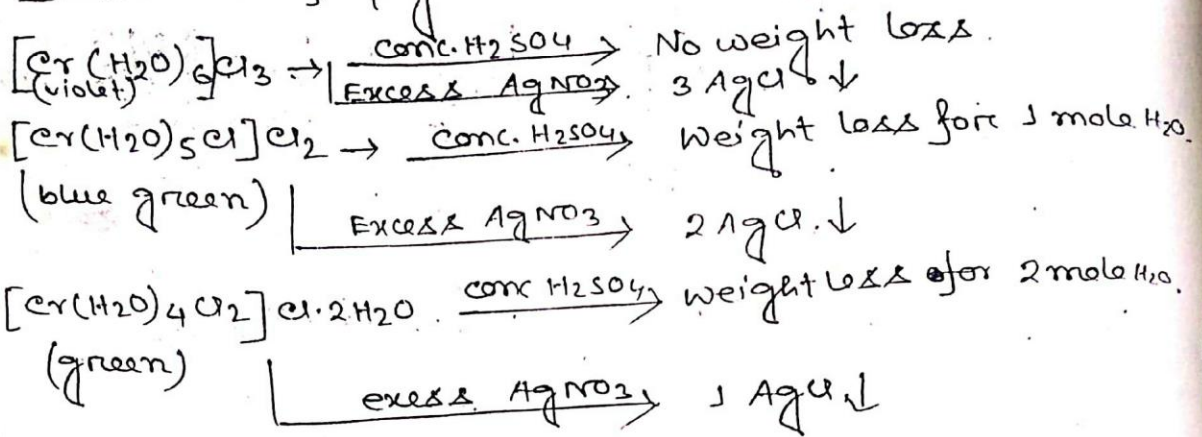 [Cr(H2O)6]Cl3 → conc. H2SO4 → No weight loss.
(violet) Excess AgNO3 → 3 AgCl ↓
[Cr(H2O)5Cl]Cl2 → conc. H2SO4 → weight loss fore 1 mole H2O.
(blue green) Excess AgNO3 → 2 AgCl. ↓
[Cr(H2O)4Cl2]Cl·2H2O. conc H2SO4 → weight loss for 2 mole H2O.
(green)
exess AgNO3 → 1 AgCl ↓